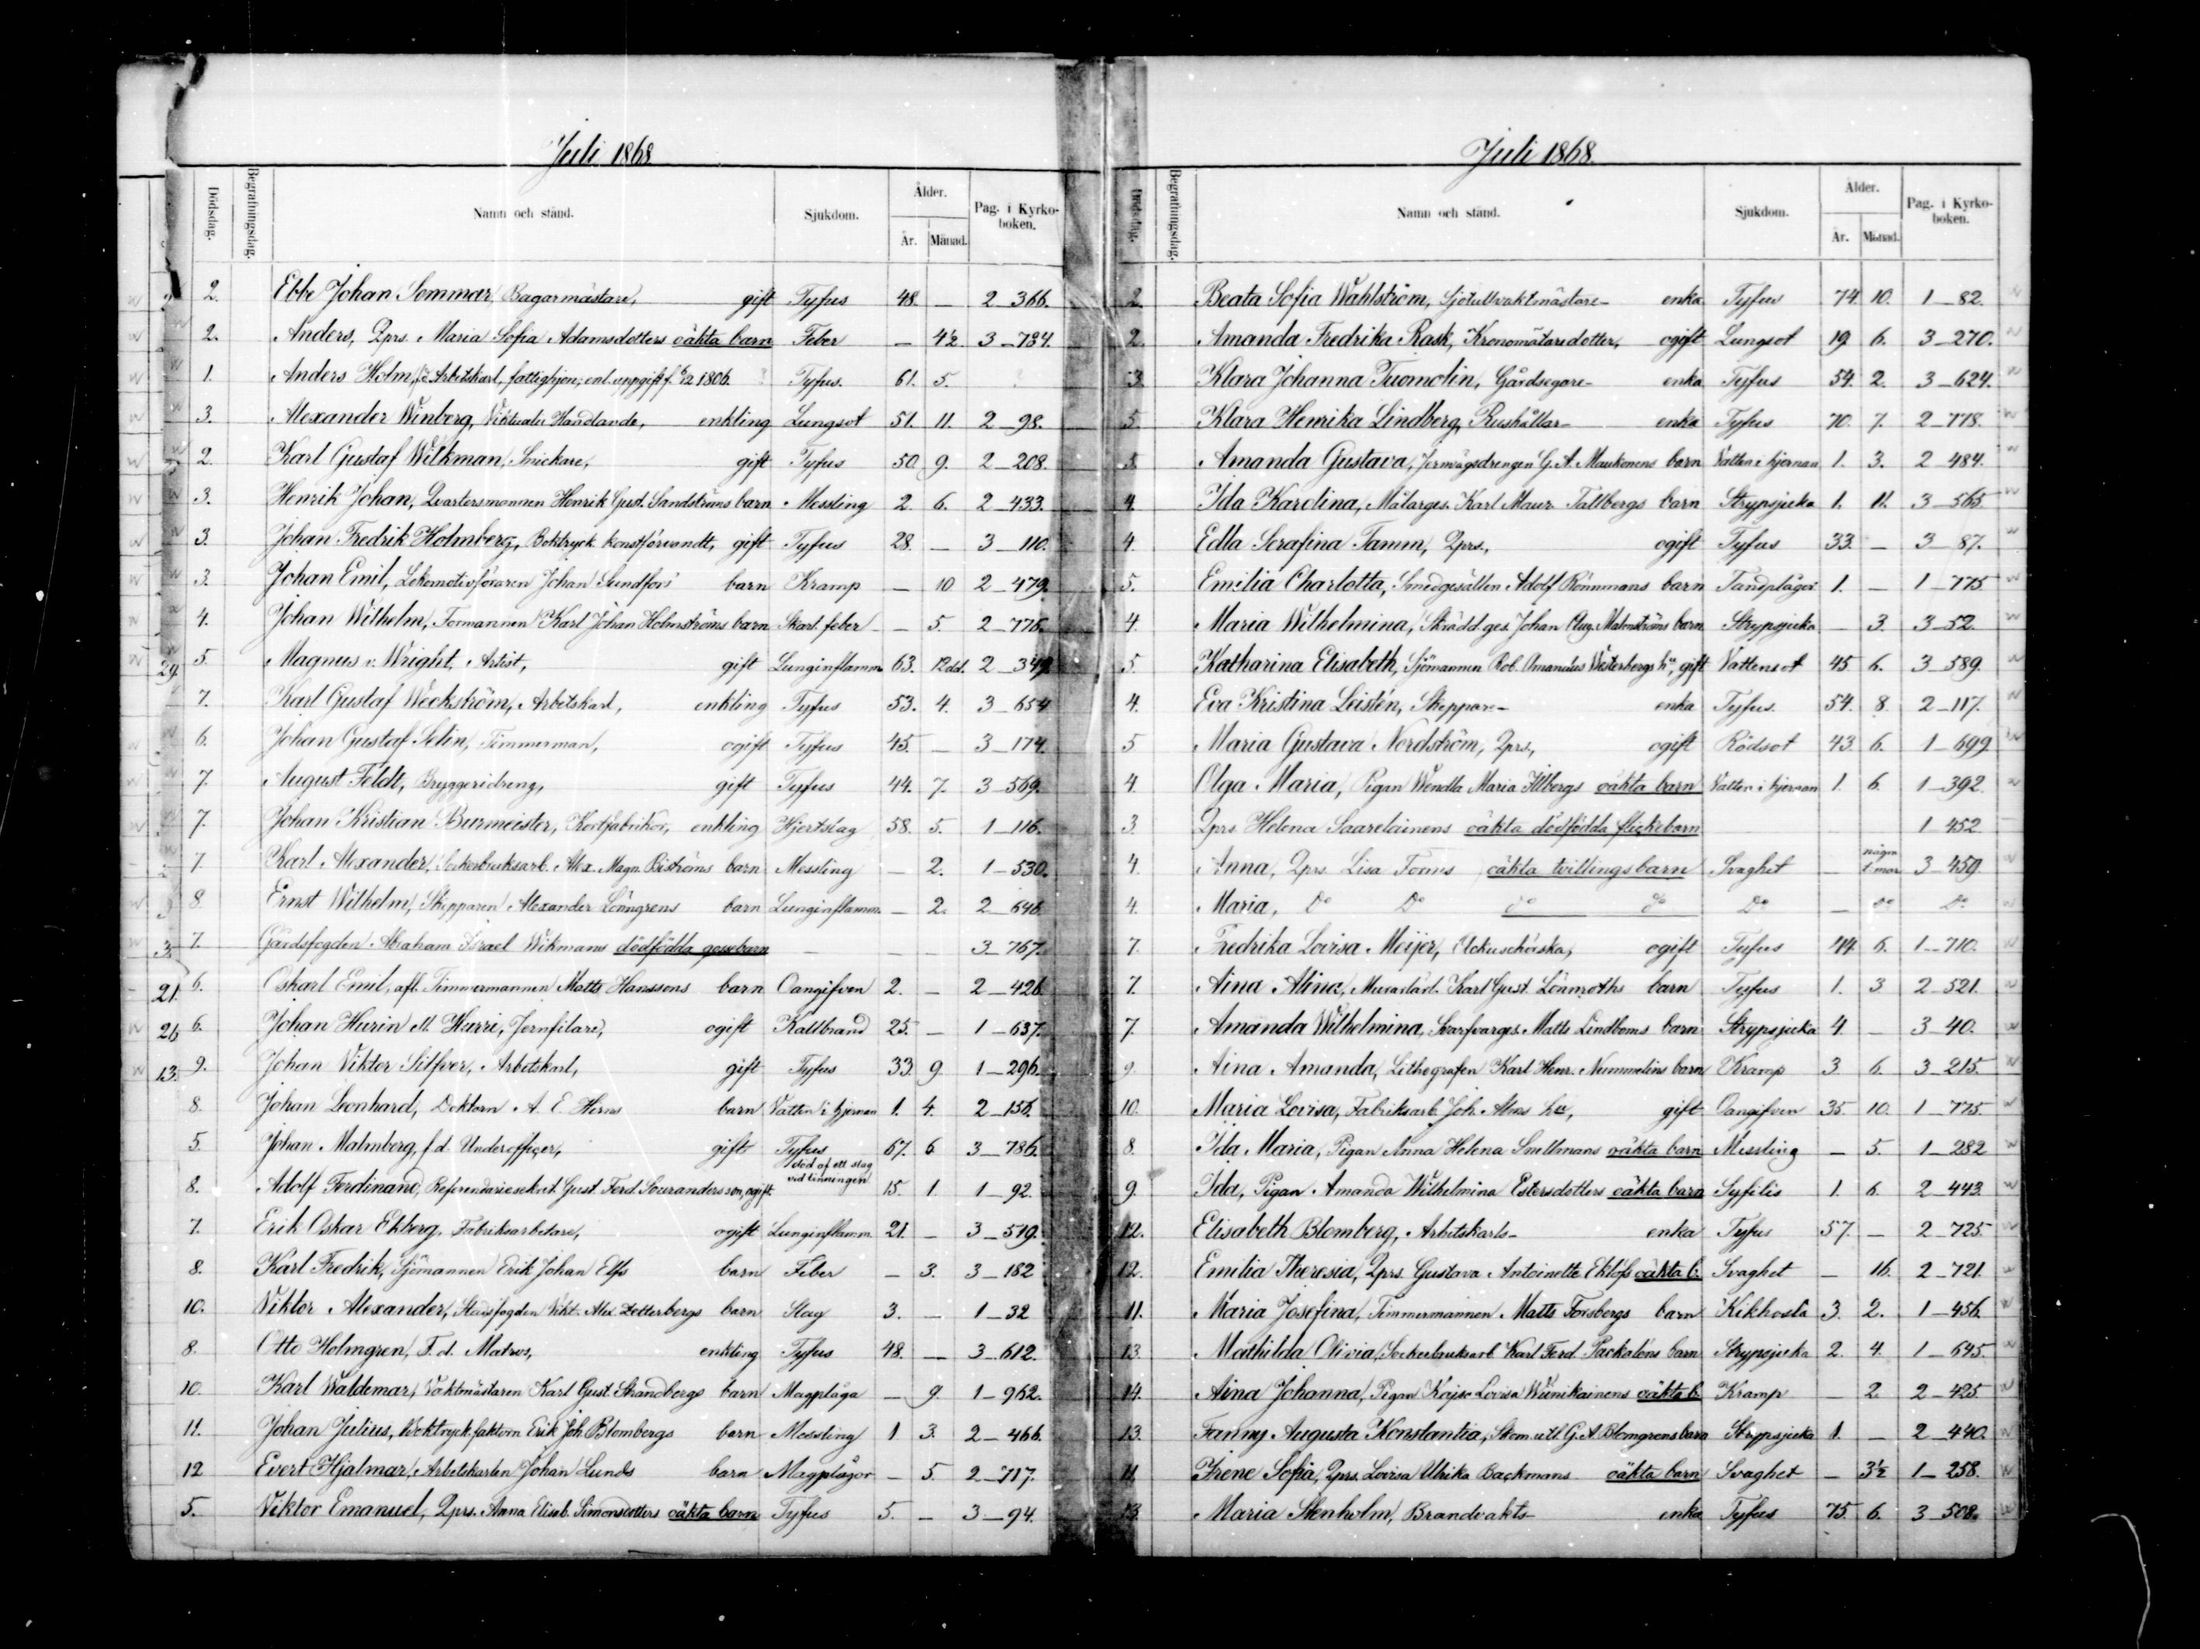 Juli 1868
Dödsdag. Begrafningsdag. Namn och stånd. Sjukdom. Ålder. År. Månad. Pag. i Kyrkoboken.
2. Ebbe Johan Sommar, Bagarmästare, gift Tyfus 48. — 2—366.
2. Anders, Qprs. Maria Sofia Adamsdotters oäkta barn Feber — 4½. 3—734.
1. Anders Holm, Arbetskarl, fattighjon, enl. uppgift f. 1806. Tyfus. 61. 5.
3. Alexander Winberg, Viktualie Handlande, enkling Lungsot 51. 11. 2—98.
2. Karl Gustaf Wilkman, Snickare, gift Tyfus 50 9. 2—208.
3. Henrik Johan, Qvartersmannen Henrik Gust. Sandströms barn Messling 2. 6. 2—433.
3. Johan Fredrik Holmberg, Boktryck. konstförvandt, gift Tyfus 28. — 3—110.
3. Johan Emil, Lokomotivföraren Johan Sundfors' barn Kramp — 10 2—479.
4. Johan Wilhelm, Formannen Karl Johan Holmströms barn Skarl. feber — 5. 2—775.
29. 5. Magnus v. Wright, Artist, gift Lunginflamm. 63. 12 dd. 2—349.
7. Karl Gustaf Weckström, Arbetskarl, enkling Tyfus 53. 4. 3—654
6. Johan Gustaf Selin, Timmerman, ogift Tyfus 45. — 3—174.
7. August Feldt, Bryggeridreng, gift Tyfus 44. 7. 3—569.
7. Johan Kristian Burmeister, Kortfabrikör, enkling Hjertslag 58. 5. 1—116.
7. Karl Alexander, Sockerbruksarb. Alex. Magn. Biströms barn Messling — 2. 1—530.
8. Ernst Wilhelm, Skepparen Alexander Lönngrens barn Lunginflamm. — 2. 2—646.
3. 7. Gårdsfogden Abraham Israel Wikmans dödfödda gossebarn — — — 3—767.
21. 6. Oskar Emil, afl. Timmermannen Matts Hanssons barn Oangifven 2. — 2—426.
26 6. Johan Hurin ell. Hurri, Jernfilare, ogift Kallbrand 25. — 1—637.
13. 9. Johan Viktor Silfver, Arbetskarl, gift Tyfus 33. 9 1—296.
8. Johan Leonhard, Doktorn A. E. Herns barn Vatten i hjernan 1. 4. 2—156.
5. Johan Malmberg, f.d. Underofficer, gift Tyfus 67. 6 3—786.
8. Adolf Ferdinand, Referendariesekret. Gust. Ferd. Sourandersson, ogift död af ett slag vid tinningen 15. 1. 1—92.
7. Erik Oskar Ekberg, Fabriksarbetare, ogift Lunginflamm. 21. — 3—519.
8. Karl Fredrik, Sjömannen Erik Johan Elfs barn Feber — 3. 3—182
10. Viktor Alexander, Vikt. Alex. Zetterbergs barn Slag 3. — 1—32
8. Otto Holmgren, F.d. Matros, enkling Tyfus 48. — 3—612.
10. Karl Waldemar, Vaktmästaren Karl Gust. Strandbergs barn Magplåga — 9. 1—962.
11. Johan Julius, Boktryck. faktorn Erik Joh. Blombergs barn Messling 1 3. 2—466.
12 Evert Hjalmar, Arbetskarlen Johan Lunds barn Magplågor — 5. 2—717.
5. Viktor Emanuel, Qprs. Anna Elisab. Simonsdotters oäkta barn Tyfus 5. — 3—94.
Juli 1868.
Dödsdag. Begrafningsdag. Namn och stånd. Sjukdom. Ålder. År. Månad. Pag. i Kyrkoboken.
2. Beata Sofia Wahlström, Sjötullvaktmästare- enka Tyfus 74. 10. 1—82.
2. Amanda Fredrika Rask, Kronomätaredotter, ogift Lungsot 19 6. 3—270.
3. Klara Johanna Tuomolin, Gårdsegare- enka Tyfus 54. 2. 3—624.
5. Klara Henrika Lindberg, Rushållar- enka Tyfus 70. 7. 2—778.
3. Amanda Gustava, Jernvägsdrengen G. A. Maukonens barn Vatten i hjernan 1. 3. 2—484.
4. Ida Karolina, Målarges. Karl Maur. Tallbergs barn Strypsjuka 1. 11. 3—565
4. Edla Serafina Tamm, Qprs., ogift Tyfus 33. — 3—87.
5. Emilia Charlotta, Smedgesällen Adolf Rönnmans barn Tandplågor 1. — 1—775
4. Maria Wilhelmina, Skrädd.ges. Johan Aug. Malmströms barn Strypsjuka — 3. 3—52.
5. Katharina Elisabeth, Sjömannen Rob. Amandus Westerbergs hu, gift Vattensot 45 6. 3—589.
4. Eva Kristina Leistén, Skeppare- enka Tyfus. 54. 8. 2—117.
5 Maria Gustava Nordström, Qprs., ogift Rödsot 43. 6. 1—699
4. Olga Maria, Pigan Wendla Maria Illbergs oäkta barn Vatten i hjernan 1. 6. 1—392.
3. Qprs Helena Saarelainens oäkta dödfödda flickebarn 1 452
4. Anna, Qprs. Lisa Tooms oäkta tvillingsbarn Svaghet — några timar 3—459.
4. Maria, Do Do do do Do — Do Do
7. Fredrika Lovisa Meijer, ogift Tyfus 44 6. 1—710.
7. Aina Alina, Murarlärl. Karl Gust. Lönnroths barn Tyfus 1. 3 2—521.
7. Amanda Wilhelmina, Garfvarges. Matts Lindboms barn Strypsjuka 4. — 3—40.
9. Aina Amanda, Lithografen Karl Henr. Nummelins barn Kramp 3 6. 3—215.
10. Maria Lovisa, Fabriksarb. Joh. Alms hu, gift Oangifven 35 10. 1—775.
8. Ida Maria, Pigan Anna Helena Snellmans oäkta barn Messling — 5. 1—282
9. Ida, Pigan Amanda Wilhelmina Estersdotters oäkta barn Syfilis 1. 6. 2—443.
12. Elisabeth Blomberg, Arbetskarls- enka Tyfus 57. — 2—725.
12. Emilia Theresia, Qprs. Gustava Antoinette Eklöfs oäkta b. Svaghet — 16. 2—721.
11. Maria Josefina, Timmermannen Matts Forsbergs barn Kikhosta 3. 2. 1—456.
13. Mathilda Olivia, Sockerbruksarb. Karl Ferd. Packaléns barn Strypsjuka 2. 4. 1—645.
14. Aina Johanna, Pigan Kajsa Lovisa Wänikainens oäkta b. Kramp — 2. 2—425
13. Fanny Augusta Konstantia, G. A. Blomgrens barn Strypsjuka 1. — 2—440.
11. Irene Sofia, Qprs. Lovisa Ulrika Backmans oäkta barn Svaghet — 3½ 1—258.
13. Maria Stenholm, Brandvakts- enka Tyfus 75. 6. 3—508.